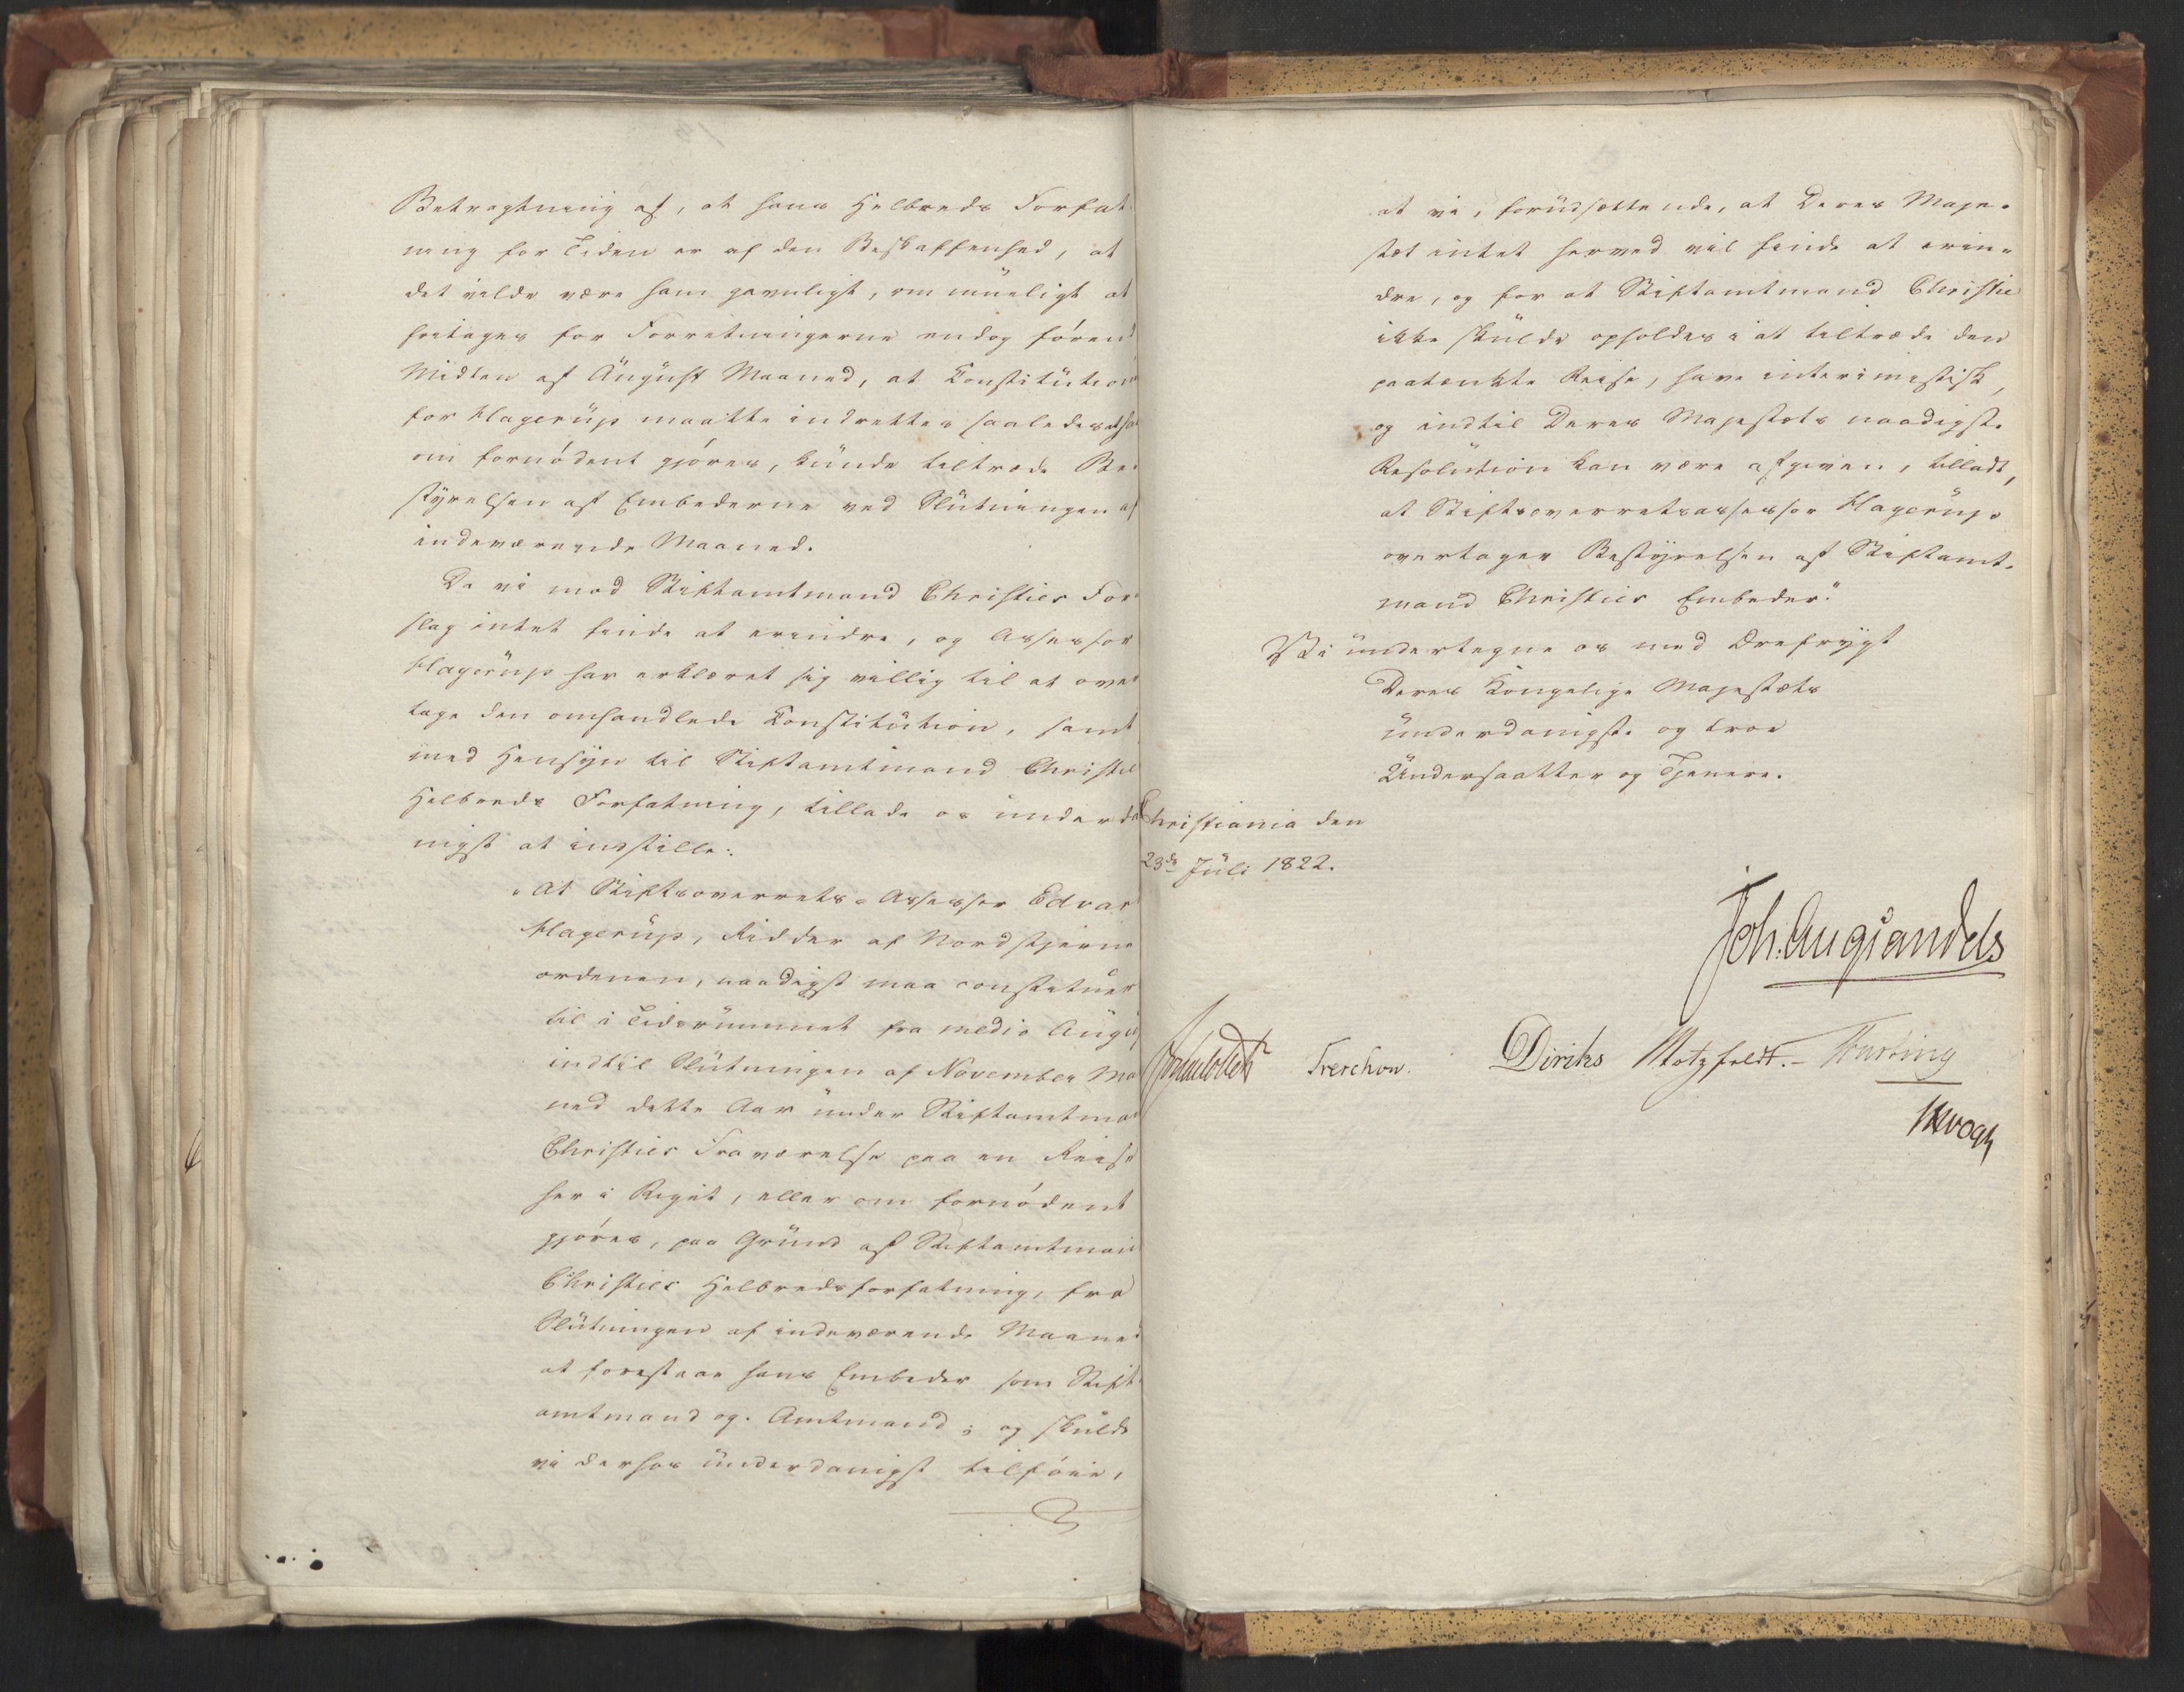 Betragtning af, at hans Helbreds Forfat-
ning for Tiden er af den Beskaffenhed, at
det vilde være ham gavnligt, om mueligt at
fritages for Forretningerne endog förend
Midten af August Maaned, at Constitution
for Hagerup maatte indrettes saaledes at han
om fornödent gjöres, kunde tiltræde Be-
styrelsen af Embederne ved Slutningen af
indeværende Maaned.
Da vi mod Stiftamtmand Christies For
slag intet finde at erindre, og Assessor
Hagerup har erklæret sig villig til at over
tage den omhandlede Constitution, samt
med Hensyn til Stiftamtmand Christies
Helbreds Forfatning, tillade os underda
nigst at indstille:
"At Stiftsoverrets-Assessor Edvar
Hagerup, Ridder af Nordstjerne
ordenen, naadigst maa constitueres
til i Tidsrummet fra medio August
indtil Slutningen af November Ma
ned dette Aar under Stiftamtma
Christies Fraværelse paa en Reise
her i Riget, eller om fornödent
gjöres, paa Grund af Stiftamtman
Christies Helbredsforfatning, fra
Slutningen af indeværende Maaned
at forestaae hans Embeder som Stift
amtmand og Amtmand; og skulde
vi derhos underdanigst tilföie,
at vi, forudsættende, at Deres Maje-
stæt intet herved vil finde at erin-
dre, og for at Stiftamtmand Christie
ikke skulde opholdes i at tiltræde den
paatænkte Reise, have interimistisk,
og indtil Deres Majestæts naadigste
Resolution kan være afgiven, tilladt,
at Stiftsoverretsassessor Hagerup
overtager Bestyrelsen af Stiftamt-
mand Christies Embeder."
Vi undertegne os med Ærefrygt
Deres Kongelige Majestæts
underdanigste og troe
Undersaatter og Tjenere.
Christiania den
23de Juli 1822.
Joh: Aug Sandels
Sommerhielm Treschow. Diriks Motzfeldt.- Fasting
Krogh